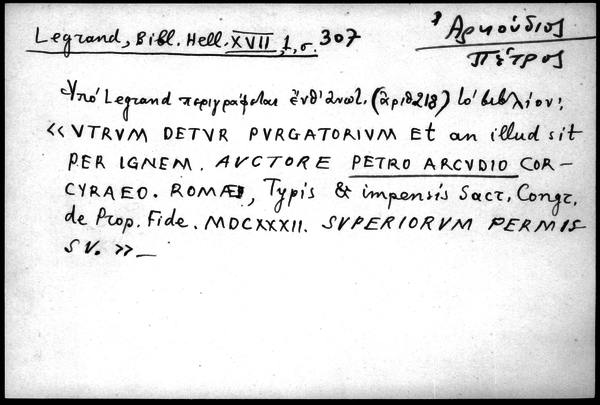 Legrand, Bibl. Hell. XVII, 1, σ. 307
Ἀρκούδιος
Πέτρος
Ὑπό Legrand περιγράφεται ἐνθ' ἀνωτ. (ἀριθ 218) τό βιβλίον:
« VTRVM DETVR PVRGATORIVM Et an illud sit
PER IGNEM. AVCTORE PETRO ARCVDIO COR-
CYRAEO. ROMAE, Typis & impensis Sacr. Congr.
de Prop. Fide. MDCXXXII. SVPERIORVM PERMIS
SV. » _